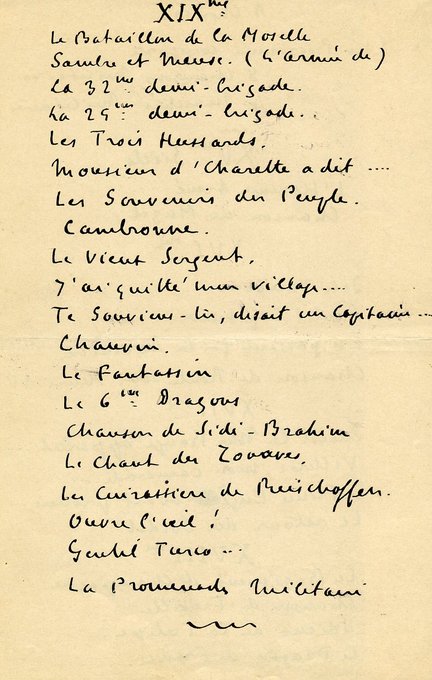 XIXme
Le Bataillon de la Moselle
Sambre et Meuse. (L'armée de)
La 32me demi-brigade.
La 29me demi-brigade.
Les Trois Hussards.
Monsieur d'Charette a dit ....
Les Souvenirs du Peuple.
Cambronne.
Le Vieux Sergent.
J'ai quitté mon village....
Te Souviens-tu, disait un Capitaine ...
Chauvin.
Le Fantassin
Le 6me Dragons
Chanson de Sidi-Brahim
Le Chant des Zouaves.
Les Cuirassiers de Reischoffen.
Ouvre l'oeil !
Gentil Turco ...
La Promenade Militaire